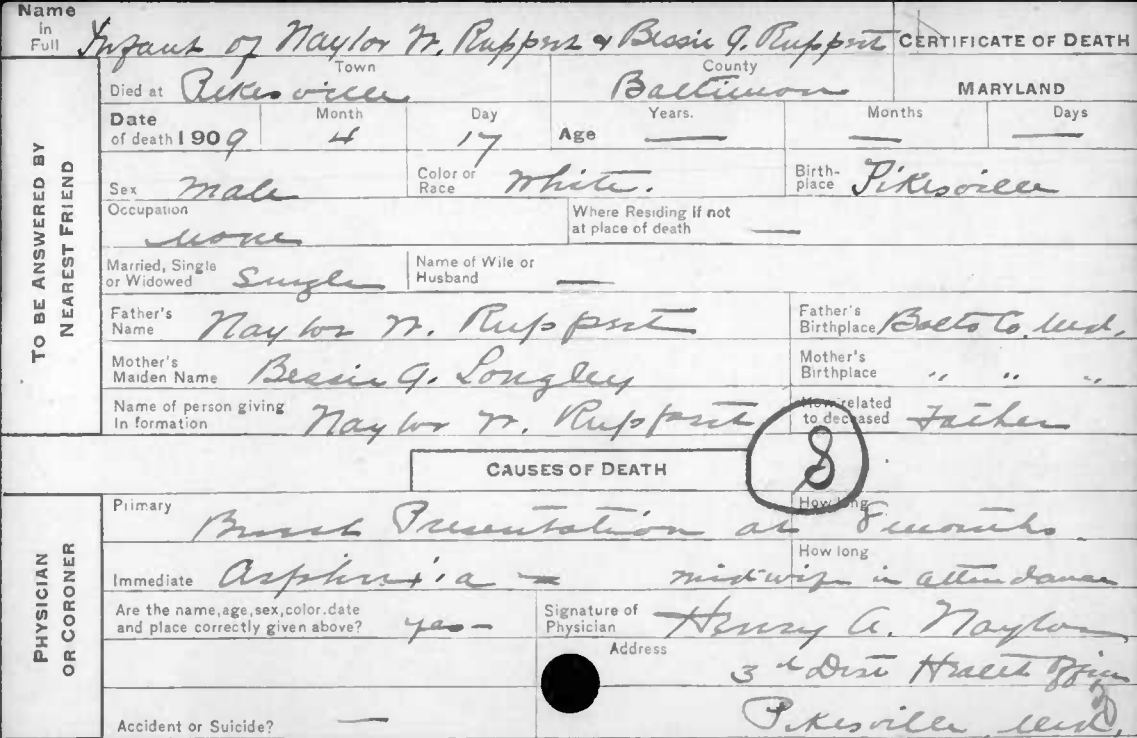 Name in Full Infant of Naylor W. Ruppert & Bessie G. Ruppert CERTIFICATE OF DEATH
TO BE ANSWERED BY NEAREST FRIEND
Died at Pikesville Town Baltimore County MARYLAND
Date of death 1909 Month 4 Day 17 Age Years. — Months — Days —
Sex Male Color or Race White. Birth-place Pikesville
Occupation none Where Residing if not at place of death —
Married, Single or Widowed Single Name of Wife or Husband —
Father's Name Naylor W. Ruppert Father's Birthplace Balto Co. Md.
Mother's Maiden Name Bessie G. Longley Mother's Birthplace " " "
Name of person giving In formation Naylor W. Ruppert How related to deceased Father
CAUSES OF DEATH 8
PHYSICIAN OR CORONER
Primary Breech Presentation at 8 months How long
Immediate Asphyxia — midwife in attendance How long
Are the name, age, sex, color. date and place correctly given above? yes — Signature of Physician Henry A. Naylor
Address 3d Dist Health Officer
Accident or Suicide? — Pikesville Md.